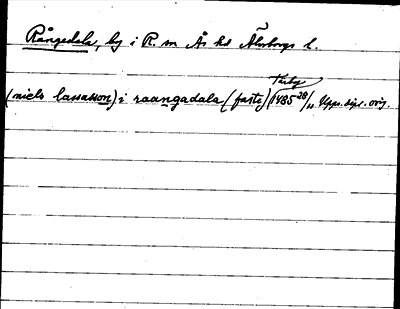 Rångedala, by i R. sn Ås hd Älvsborgs l.
Tarby
(niels lassasson) i raangadala (faste) 1485 28/11 Upps. dipl. orig.